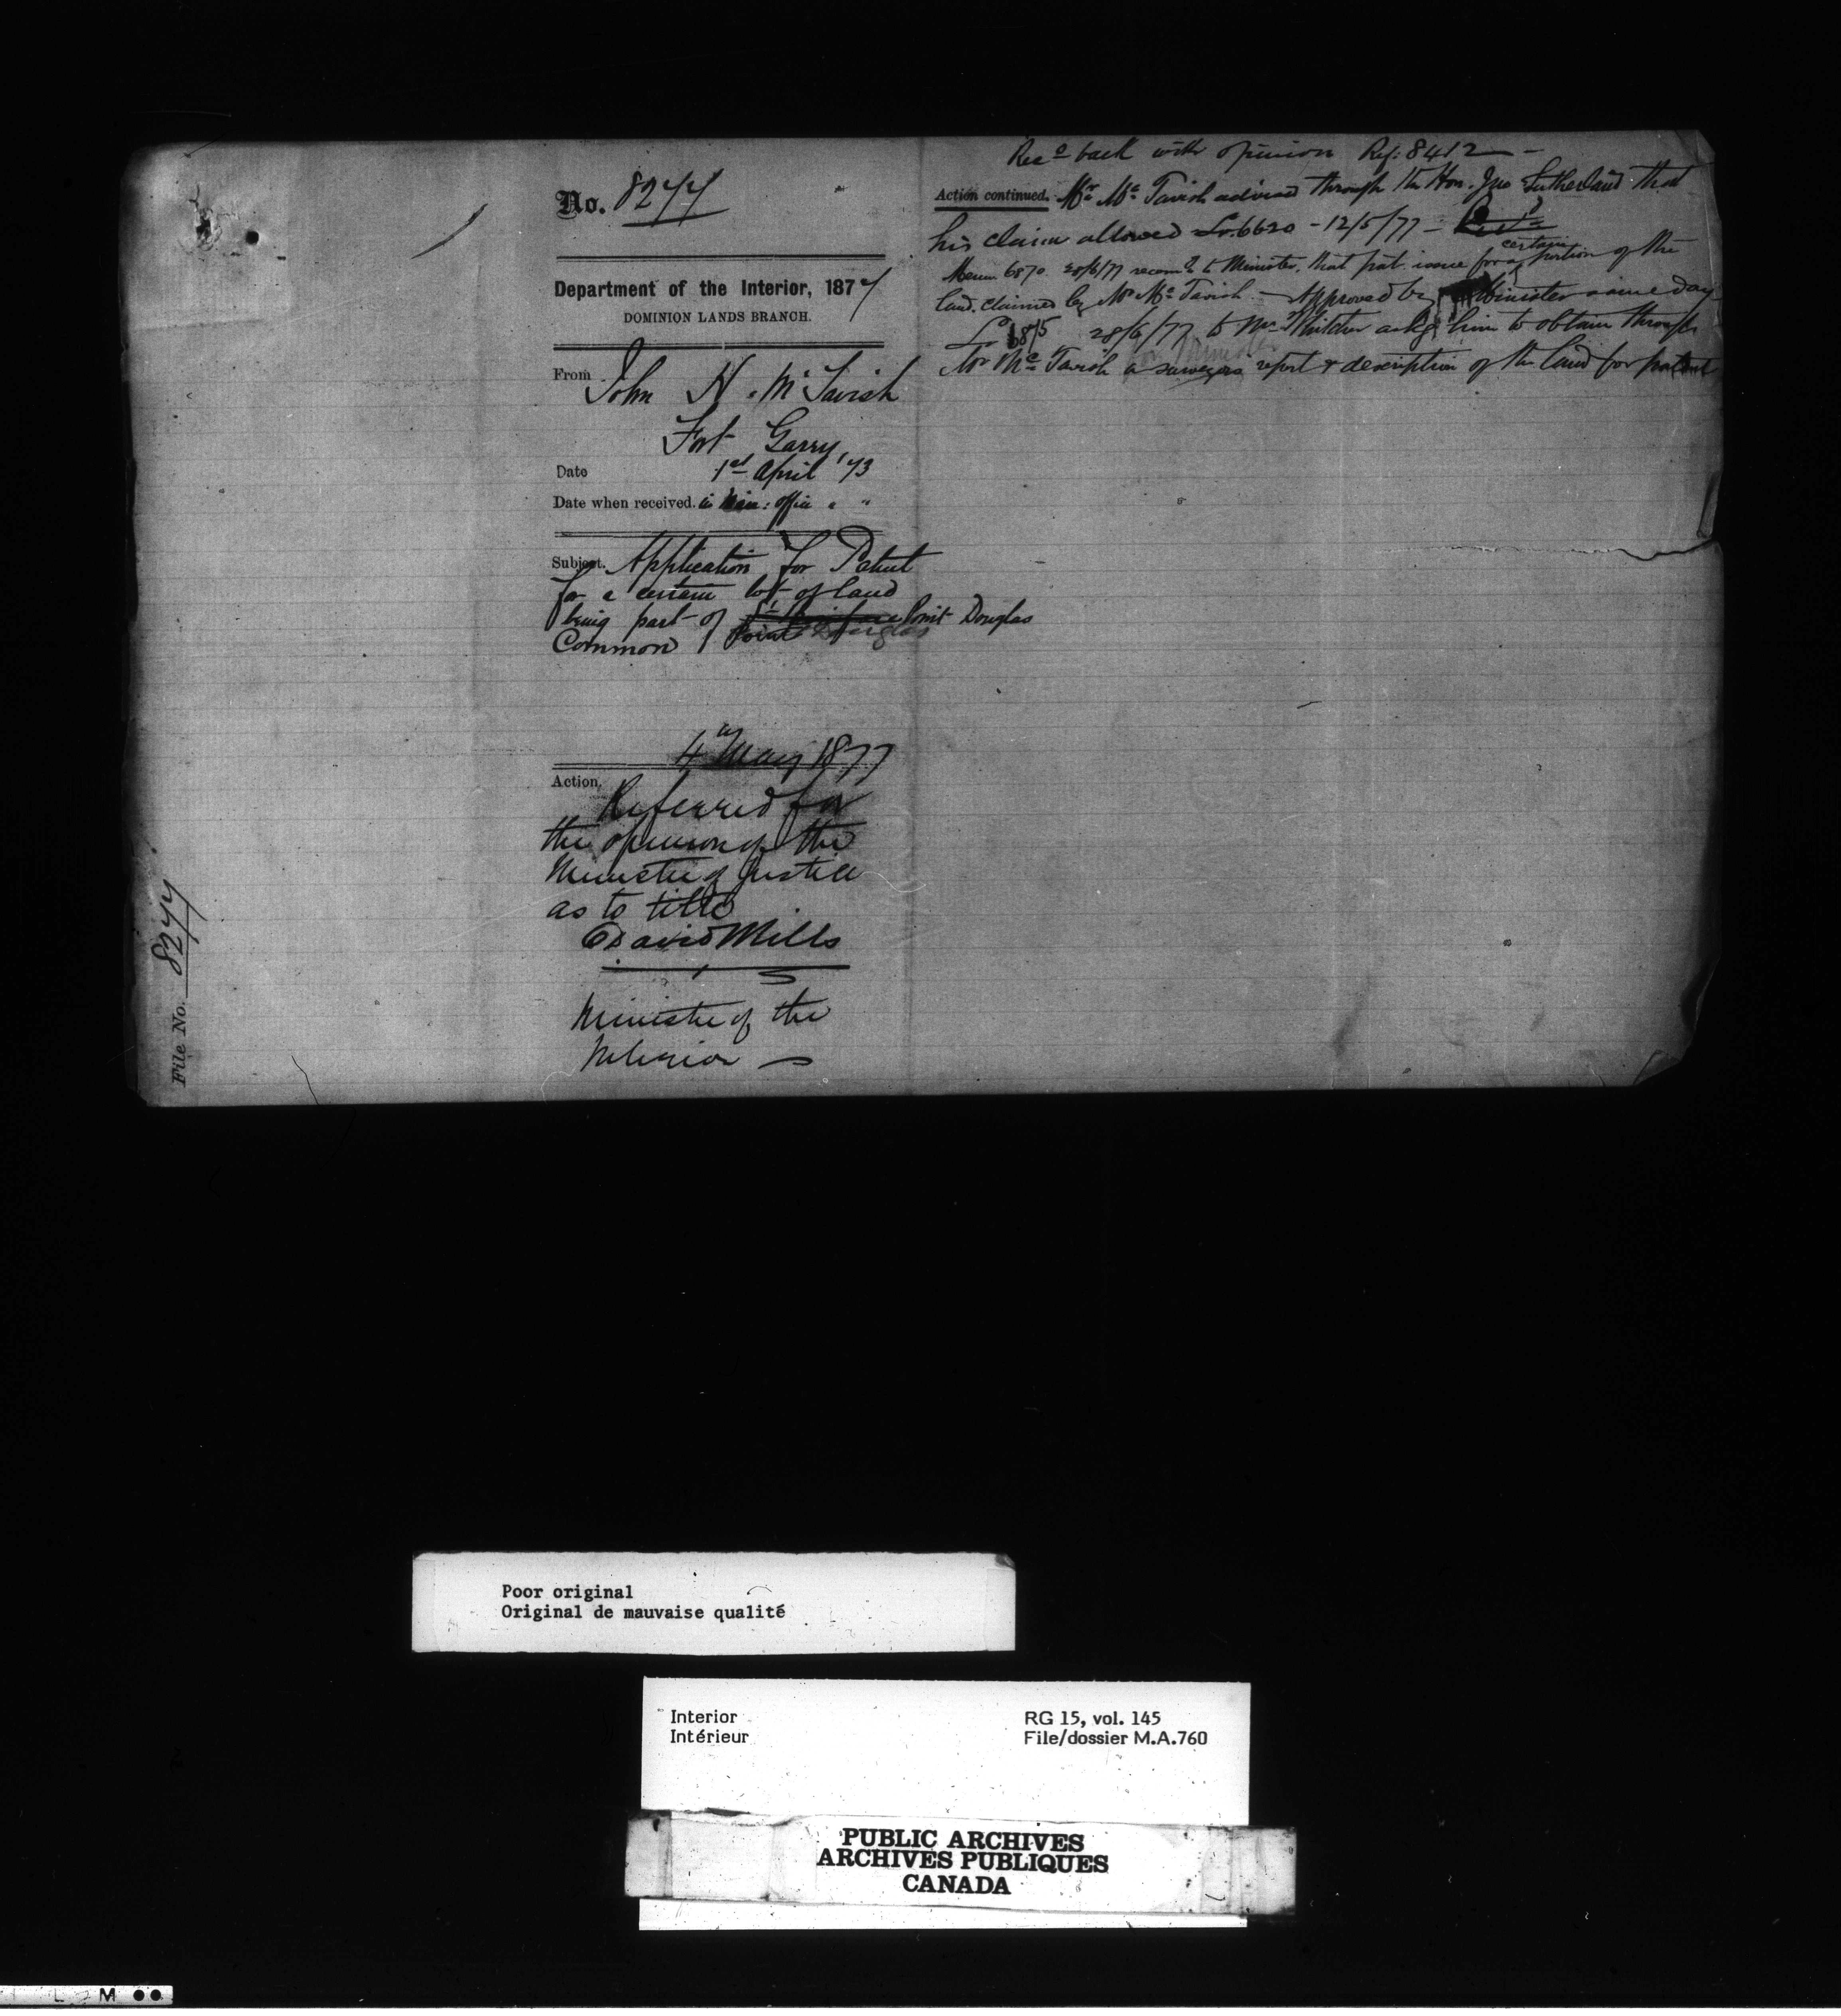 No. 8277
Department of the Interior, 1877
DOMINION LANDS BRANCH.
From John H. McTavish
Fort Garry,
Date 1st April '73
Date when received. in Win: office " "
Subject. Application for Patent
for a certain lot of land
being part of Point Douglas
Common Point Douglas
4th May 1877
Action. Referred for
the opinion of the
Minister of Justice
as to title
David Mills
Minister of the
Interior
File No. 8277
Recd back with opinion Ref: 8412
Action continued. Mr McTavish advised through the Hon. Jno Sutherland that
his claim allowed Lr. 6620 - 12/5/77 -
Mem 6870 28/6/77 recomd to Minister, that pat. issue for a certain portion of the
land claimed by Mr McTavish. - Approved by Minister same day
Lr 6875 28/6/77 to Mr Whitcher askg him to obtain through
Mr McTavish a surveyors report & description of the land for patent
Poor original
Original de mauvaise qualité
Interior
Intérieur
RG 15, vol. 145
File/dossier M.A.760
PUBLIC ARCHIVES
ARCHIVES PUBLIQUES
CANADA
L M